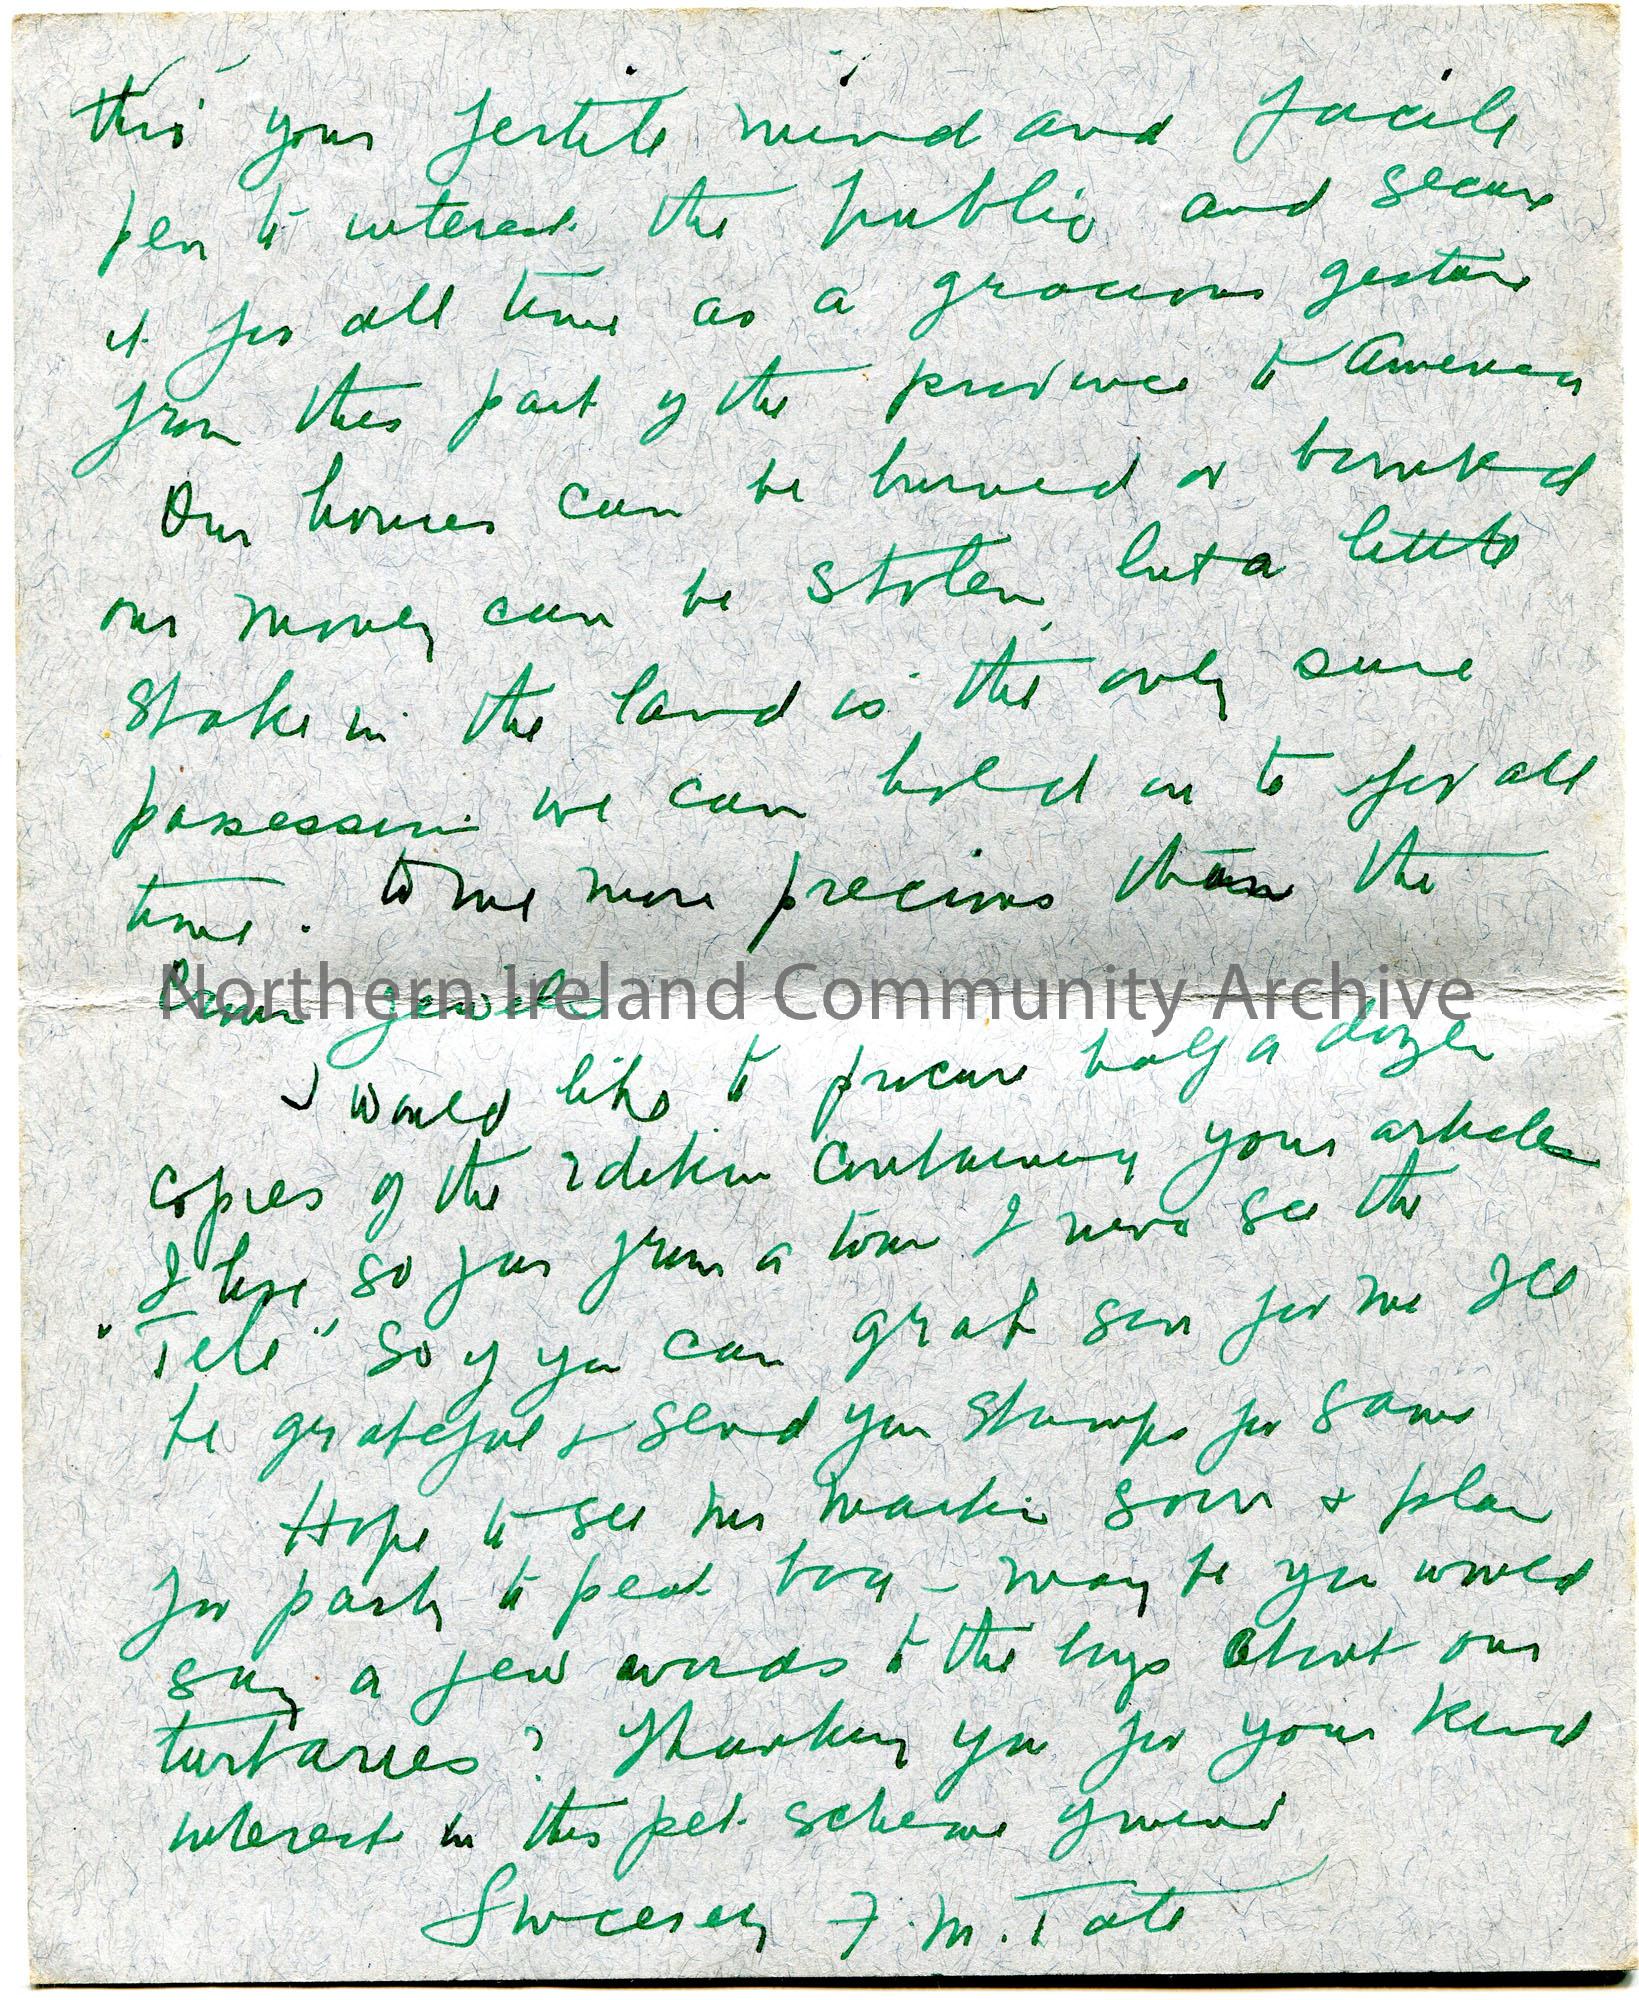 thro' your fertile mind and facile
pen to interest the public and secure
it for all time as a gracious gesture
from this part of the province to America
Our houses can be burned or bombed
our money can be stolen, but a little
stake in the land is the only sure
possession we can hold on to for all
time. to me more precious than the
Crown jewels
Northern Ireland Community Archive
I would like to procure half a dozen
copies of the edition containing your article
I live so far from a town I never see the
"Tele" so if you can grab sm for me Ill
be grateful & send you stamps for same
Hope to see mr Mackie soon & plan
for party to peat bog - may be you would
say a few words to the boys about our
turbaries? Thanking you for your kind
interest in this pet scheme of mine
Sincerely F. M. Tate